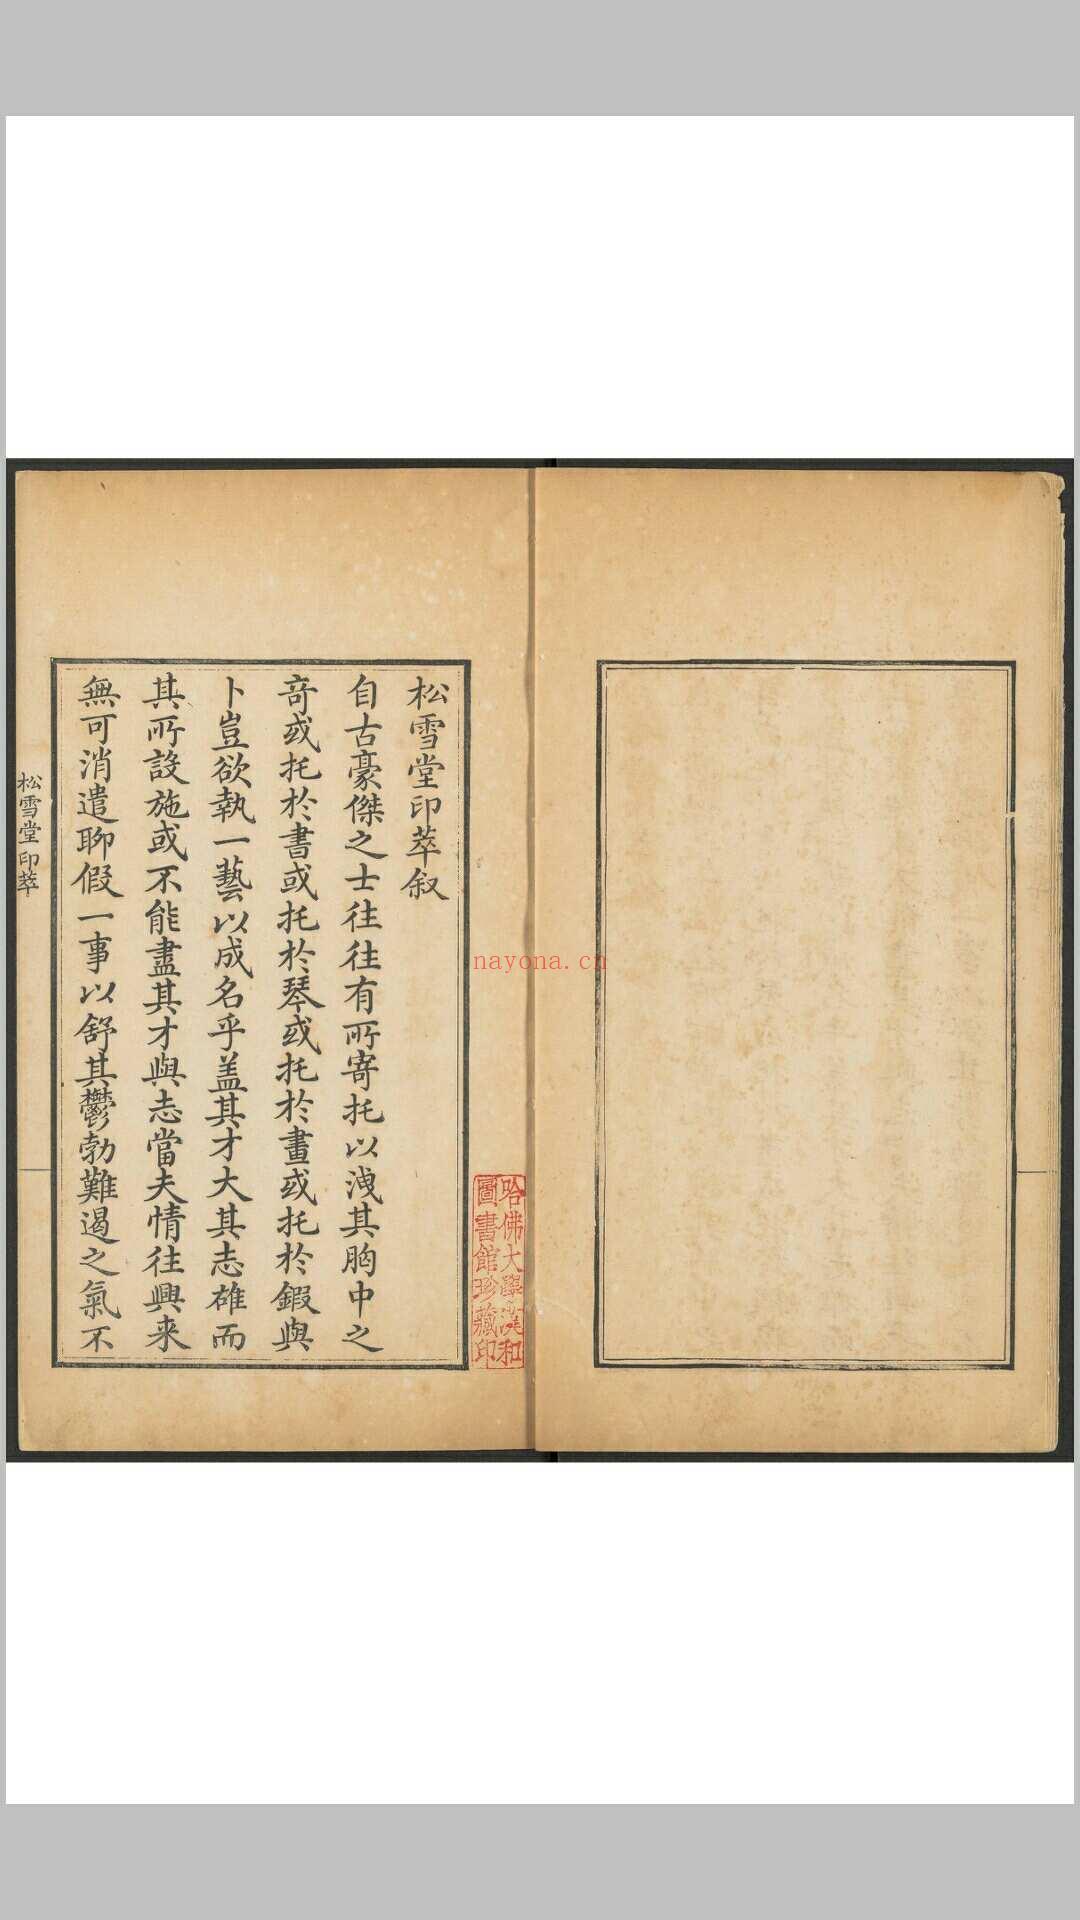 松雪堂印萃叙
自古豪傑之士往往有所寄托以洩其胸中之
竒或托於書或托於琴或托於畫或托於鍜與
卜豈欲執一藝以成名乎盖其才大其志雄而
其所設施或不能盡其才與志當夫情往興来
無可消遣聊假一事以舒其鬱勃難遏之氣不
松雪堂印萃
哈佛大學漢和
圖書館珍藏印
nayona.cn